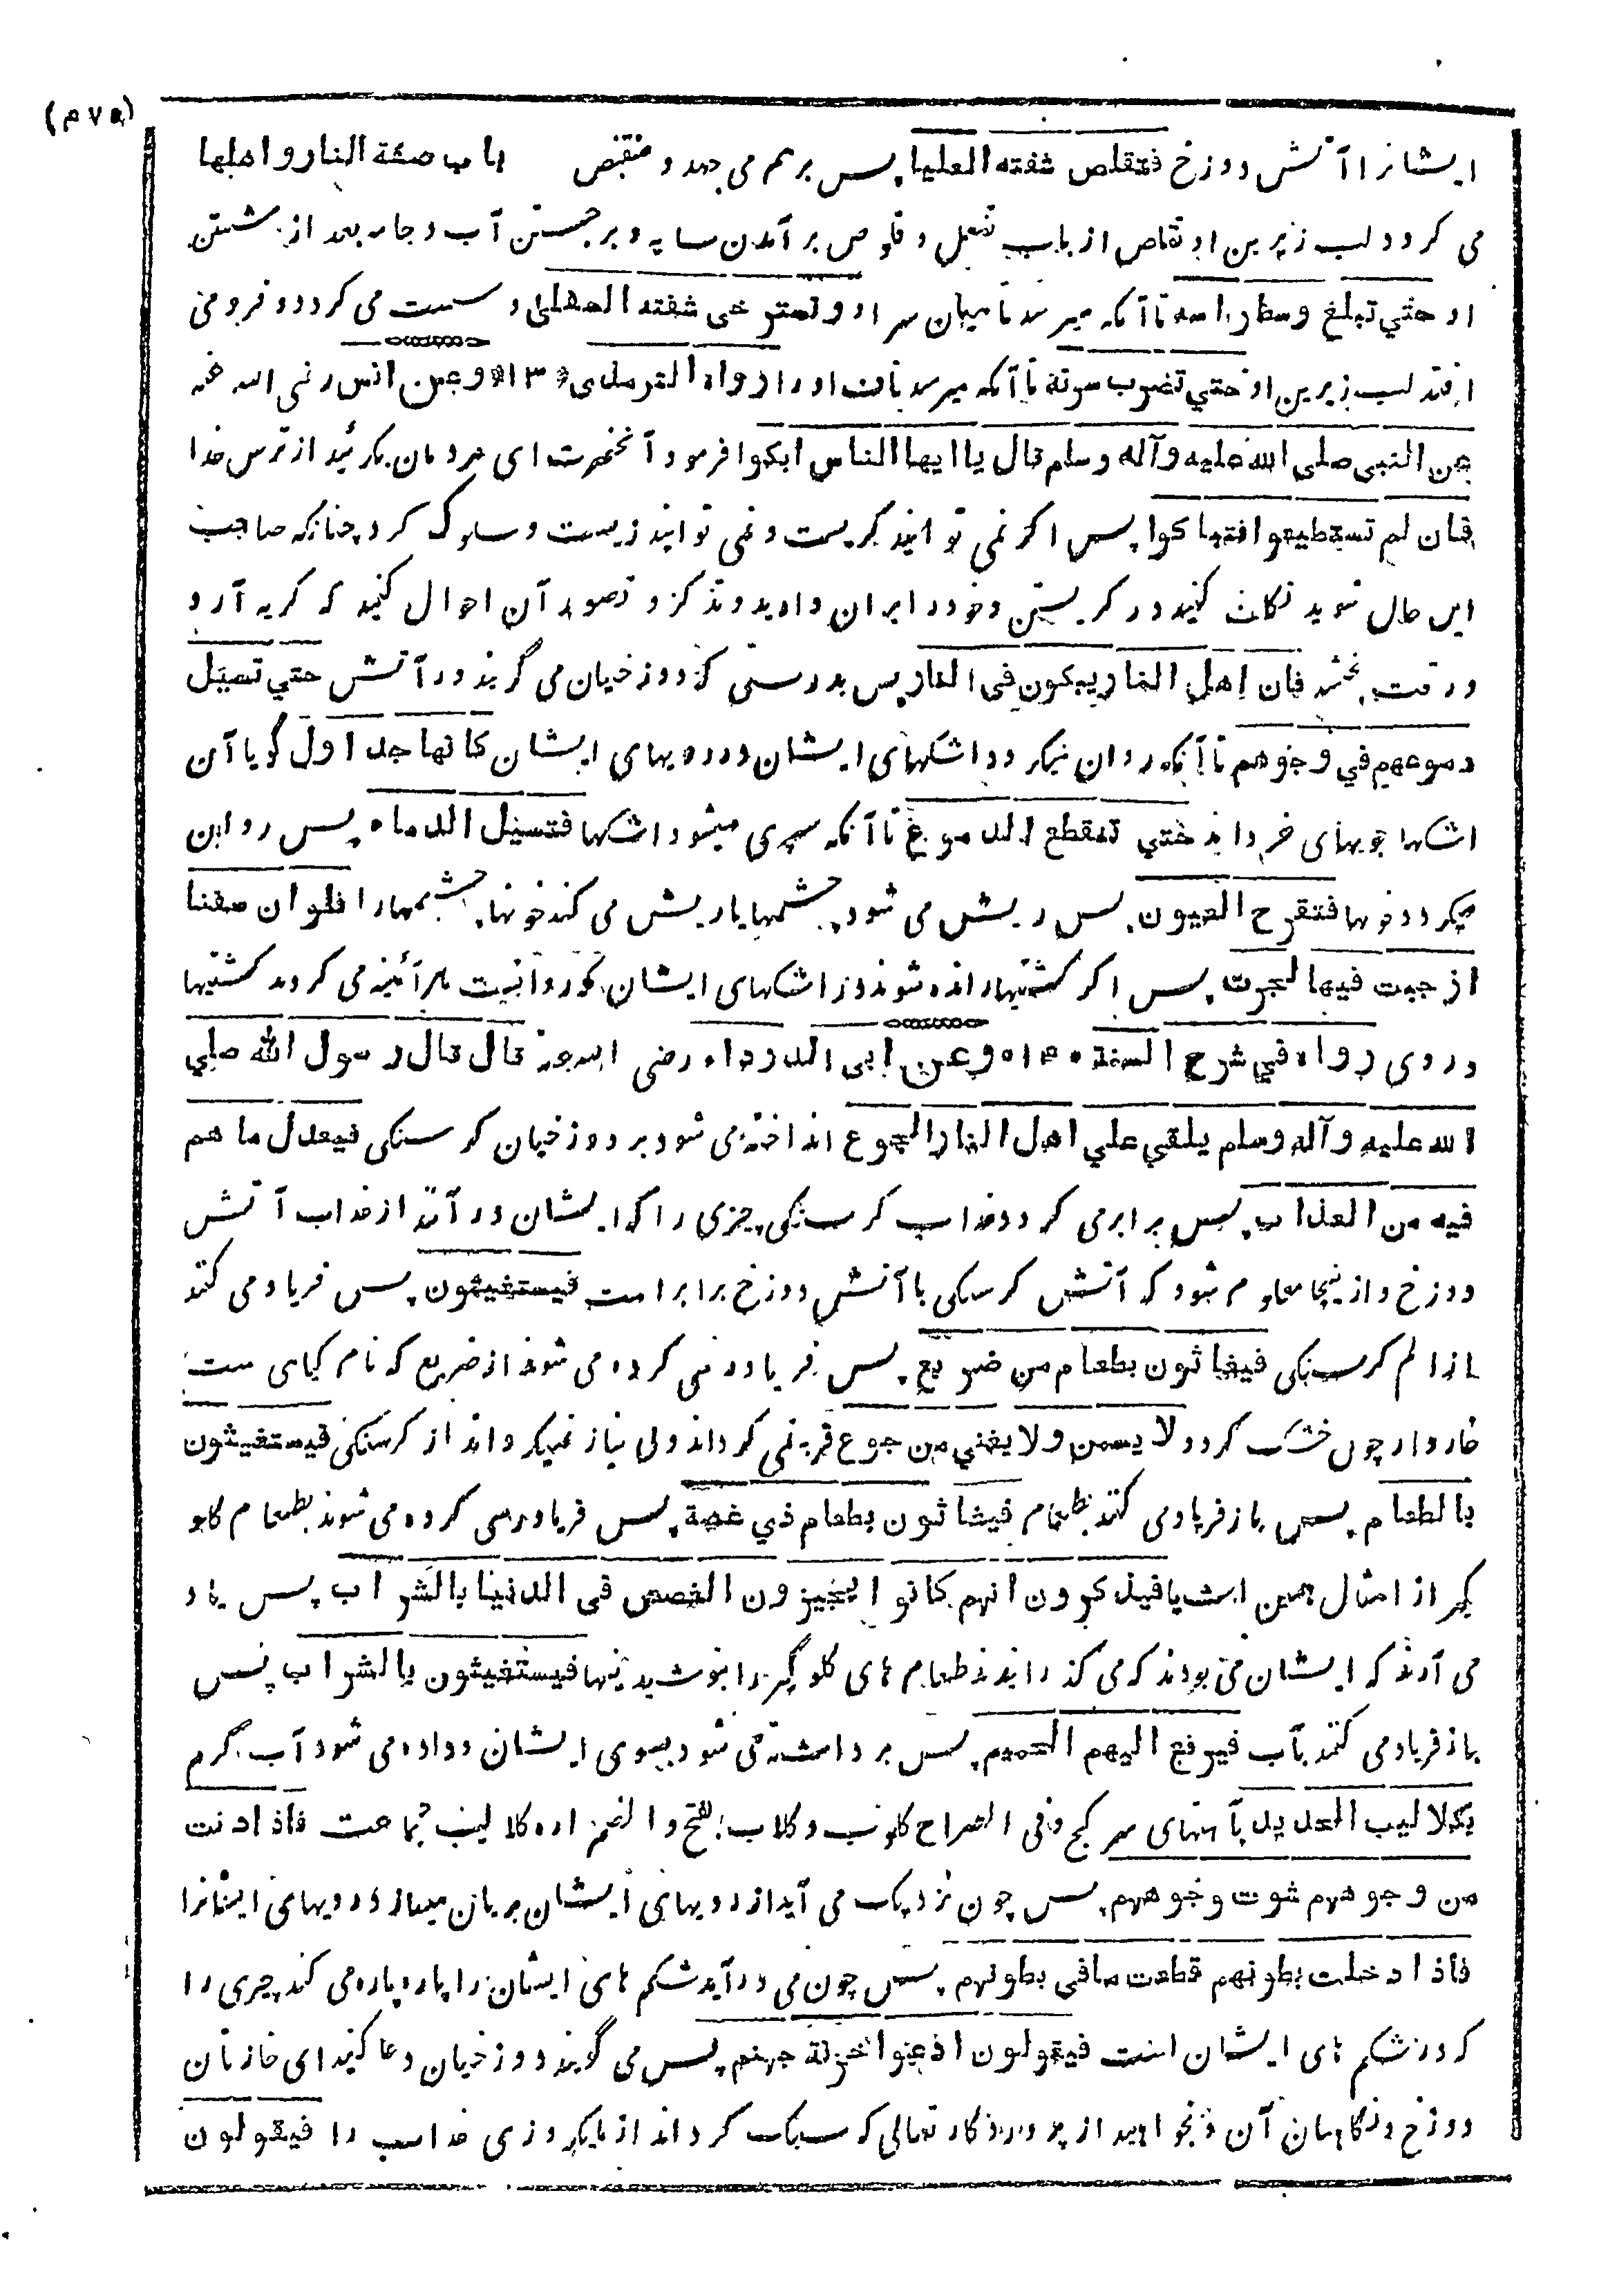 (۴۷۵)
باب صفة النار و اهلها
ایشانرا آتش دوزخ فتقلص شفته العلیا پس بر هم می جهد و منقبض
می کردد لب زبرین او تقلص از باب تفعل و قلوص بر آمدن سایه و بر جستن آب و جامه بعد از شستن
او حتي تبلغ وسط راسه تا آنکه میرسد تا میان سر او و تسترخی شفته السفلی و سست می کردد و فرو می
افتد لب زیرین او حتي تضرب سرته تا آنکه میرسد ناف او را رواه الترمذی * ۱۳ * و عن انس رضی الله عنه
عن النبی صلی الله علیه و آله و سلم قال یا ایها الناس ابکوا فرمود آنحضرت ای مردمان بکرئید از ترس خدا
فان لم تستطیعوا فتباکوا پس اکر نمی توانید کریست و نمی توانید زیست و سلوک کرد چنانکه صاحب
این حال شوید تکلف کنید در کریستن و خود را بران دارید و تذکر و تصور آن احوال کنید که کریه آرد
و رقت بخشد فان اهل النار یبکون فی النار پس بدرستی که دوزخیان می گریند در آتش حتي تسیل
دموعهم في وجوههم تا آنکه روان میکردد اشکهای ایشان در رویهای ایشان کانها جداول گویا آن
اشکها جویهای خرد اند حتي تنقطع الدموع تا آنکه سپری میشود اشکها فتسیل الدماء پس روان
میکردد خونها فتقرح العیون پس ریش می شود چشمها یا ریش می کند خونها چشمها را فلو ان سفنا
ازجیت فیها لجرت پس اکر کشتیها رانده شوند در اشکهای ایشان که روانست هر آئینه می کردند کشتیها
و روی رواه في شرح السنة * ۱۴ * و عن ابی الدرداء رضی الله عنه قال قال رسول الله صلي
الله علیه و آله و سلم یلقی علي اهل النار الجوع انداخته می شود بر دوزخیان کرسنکی فیعدل ما هم
فیه من العذاب پس برابر می کردد عذاب کرسنکی چیزی را که ایشان در آنند از عذاب آتش
دوزخ و ازینجا معلوم شود که آتش کرسنکی با آتش دوزخ برابر است فیستغیثون پس فریاد می کنند
از الم کرسنکی فیغاثون بطعام من ضریع پس فریاد رسی کرده می شوند از ضریع که نام کیاهی ست
خاردار چون خشک کردد لا یسمن و لا یغني من جوع فربه نمی کرداند و بی نیاز نمیکرداند از کرسنکی فیستغیثون
بالطعام پس باز فریاد می کنند بطعام فیغاثون بطعام ذي غصة پس فریادرسی کرده می شوند بطعام کلو
گیر از امثال همین اشیا فیذکرون انهم کانوا یجیزون الغصص فی الدنیا بالشراب پس یاد
می آرند که ایشان می بودند که می گذرانیدند طعامهای کلوگیر را بنوشیدنیها فیستغیثون بالشراب پس
باز فریاد می کنند بآب فیرفع الیهم الحمیم پس برداشته می شود بسوی ایشان و داده می شود آب گرم
بکلالیب الحدید بآهنهای سر کج و فی الصراح کلوب و کلاب بالفتح و الضم اره کلالیب جماعت فاذا دنت
من وجوههم شوت وجوههم پس چون نزدیک می آید از رویهای ایشان بریان میسازد رویهای ایشانرا
فاذا دخلت بطونهم قطعت ما في بطونهم پس چون می در آید شکم های ایشان را پاره پاره می کند چیزی را
که در شکم های ایشان است فیقولون ادعوا خزنة جهنم پس می گویند دوزخیان دعا کنید ای خازنان
دوزخ و نگاهبان آن و بخواهید از پروردکار تعالی که سبک کرداند از ما یکروزی عذاب را فیقولون